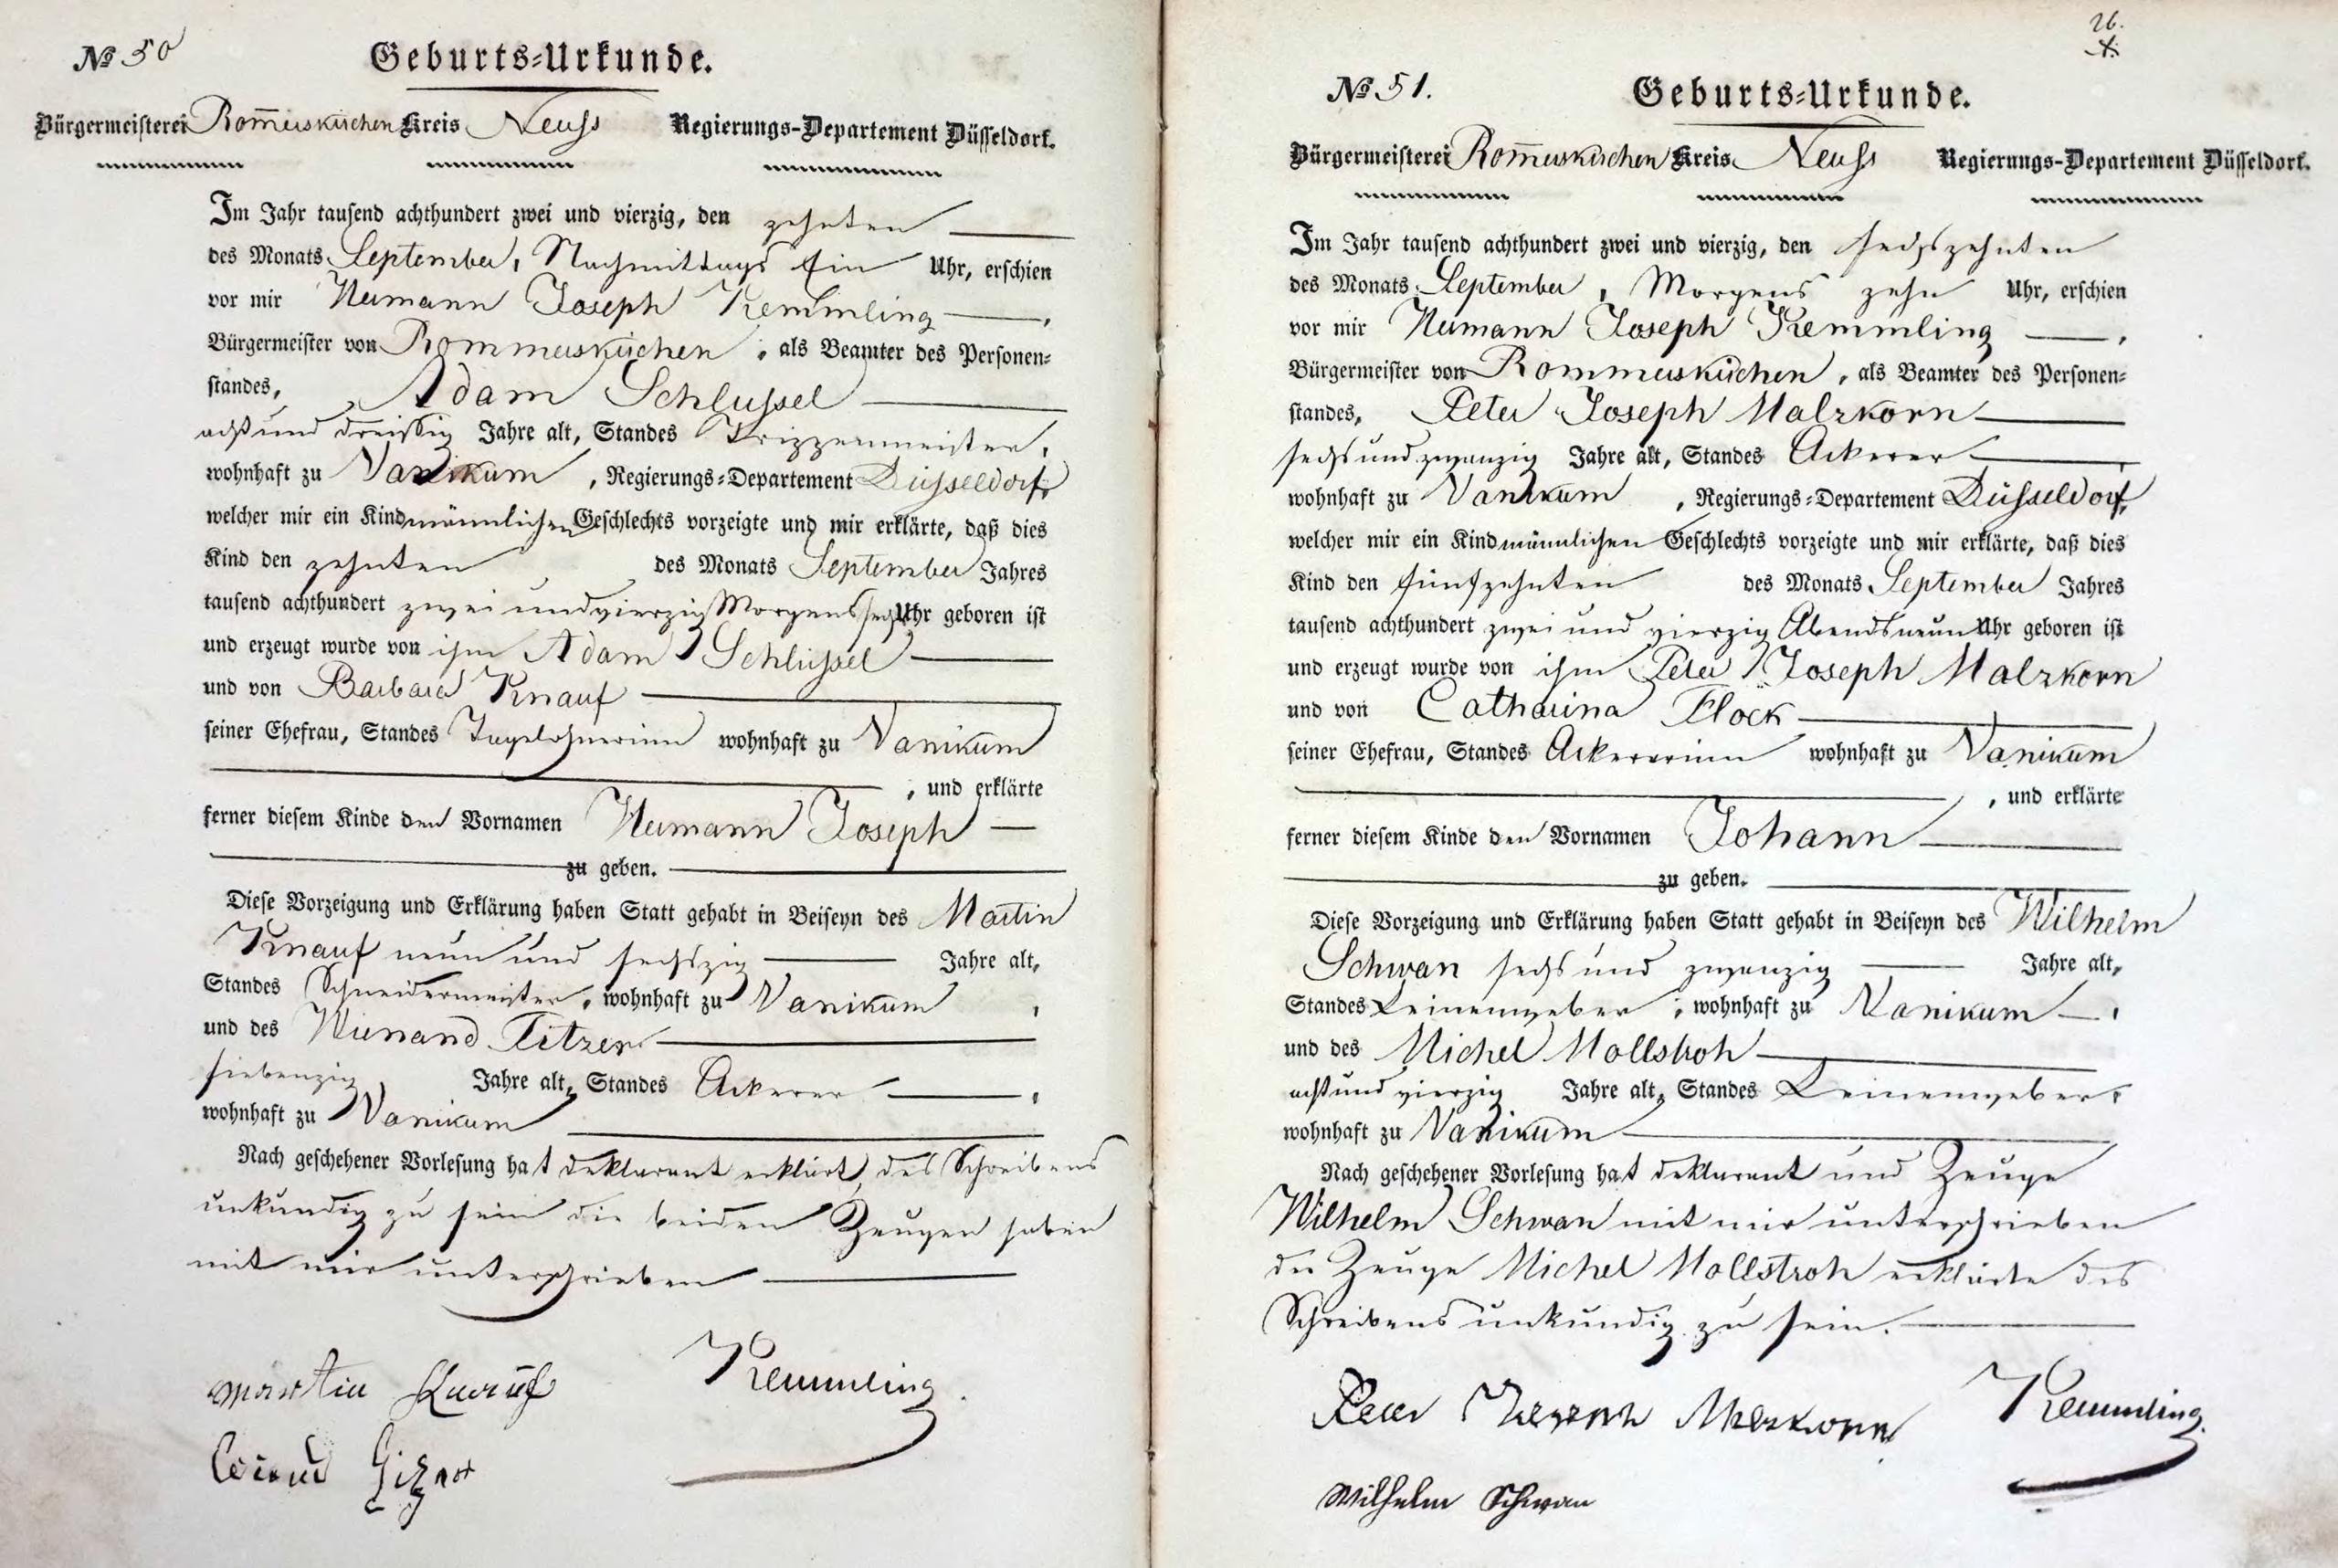 № 50
Geburts-Urkunde.
Bürgermeisterei Rom̄erskirchen Kreis Neuss Regierungs-Departement Düsseldorf.
Im Jahr tausend achthundert zwei und vierzig, den zehnten
des Monats September, Nachmittags Ein Uhr, erschien
vor mir Hermann Joseph Kemmling,
Bürgermeister von Rommerskirchen, als Beamter des Personen-
standes, Adam Schlussel
acht und dreissig Jahre alt, Standes,
wohnhaft zu Vanikum, Regierungs-Departement Düsseldorf,
welcher mir ein Kind männlichen Geschlechts vorzeigte und mir erklärte, daß dies
Kind den zehnten des Monats September Jahres
tausend achthundert zwei und vierzig Morgens sechs Uhr geboren ist
und erzeugt wurde von ihm Adam Schlüssel
und von Barbara Knauf
seiner Ehefrau, Standes Tagelohnerinn wohnhaft zu Vanikum
, und erklärte
ferner diesem Kinde den Vornamen Hermann Joseph
zu geben.
Diese Vorzeigung und Erklärung haben Statt gehabt in Beiseyn des Martin
Knauf neun und sechszig Jahre alt,
Standes Schneidermeister, wohnhaft zu Vanikum,
und des Wienand Titzer
siebenzig Jahre alt, Standes Ackerer,
wohnhaft zu Vanikum
Nach geschehener Vorlesung hat deklarant erklärt, des Schreibens
unkundig zu sein die beiden Zeugen haben
mit mir unterschrieben
Martin Knauf Kemmling
№ 51.
26.
Geburts-Urkunde.
Bürgermeisterei Rom̄erskirchen Kreis Neuss Regierungs-Departement Düsseldorf.
Im Jahr tausend achthundert zwei und vierzig, den sechszehnten
des Monats September, Morgens zehn Uhr, erschien
vor mir Hermann Joseph Kemmling,
Bürgermeister von Rommerskirchen, als Beamter des Personen-
standes, Peter Joseph Malzkorn
sechs und zwanzig Jahre alt, Standes Ackerer,
wohnhaft zu Vanikum, Regierungs-Departement Düsseldorf,
welcher mir ein Kind männlichen Geschlechts vorzeigte und mir erklärte, daß dies
Kind den fünfzehnten des Monats September Jahres
tausend achthundert zwei und vierzig Abends neun Uhr geboren ist
und erzeugt wurde von ihm Peter Joseph Malzkorn
und von Catharina Flock
seiner Ehefrau, Standes Ackererinn wohnhaft zu Vanikum
, und erklärte
ferner diesem Kinde den Vornamen Johann
zu geben.
Diese Vorzeigung und Erklärung haben Statt gehabt in Beiseyn des Wilhelm
Schwan sechs und zwanzig Jahre alt,
Standes Leinenweber, wohnhaft zu Vanikum,
und des Michel Mollstroh
acht und vierzig Jahre alt, Standes Leinenweber,
wohnhaft zu Vanikum
Nach geschehener Vorlesung hat deklarant und Zeuge
Wilhelm Schwan mit mir unterschrieben
der Zeuge Michel Mollstroh erklärte des
Schreibens unkundig zu sein.
Peter Joseph Malzkorn Kemmling
Wilhelm Schwan